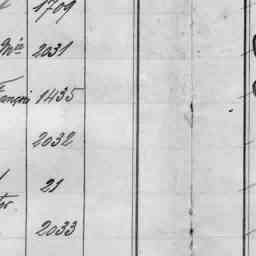 1709
Mie 2031
François 1435
2032
21
2033